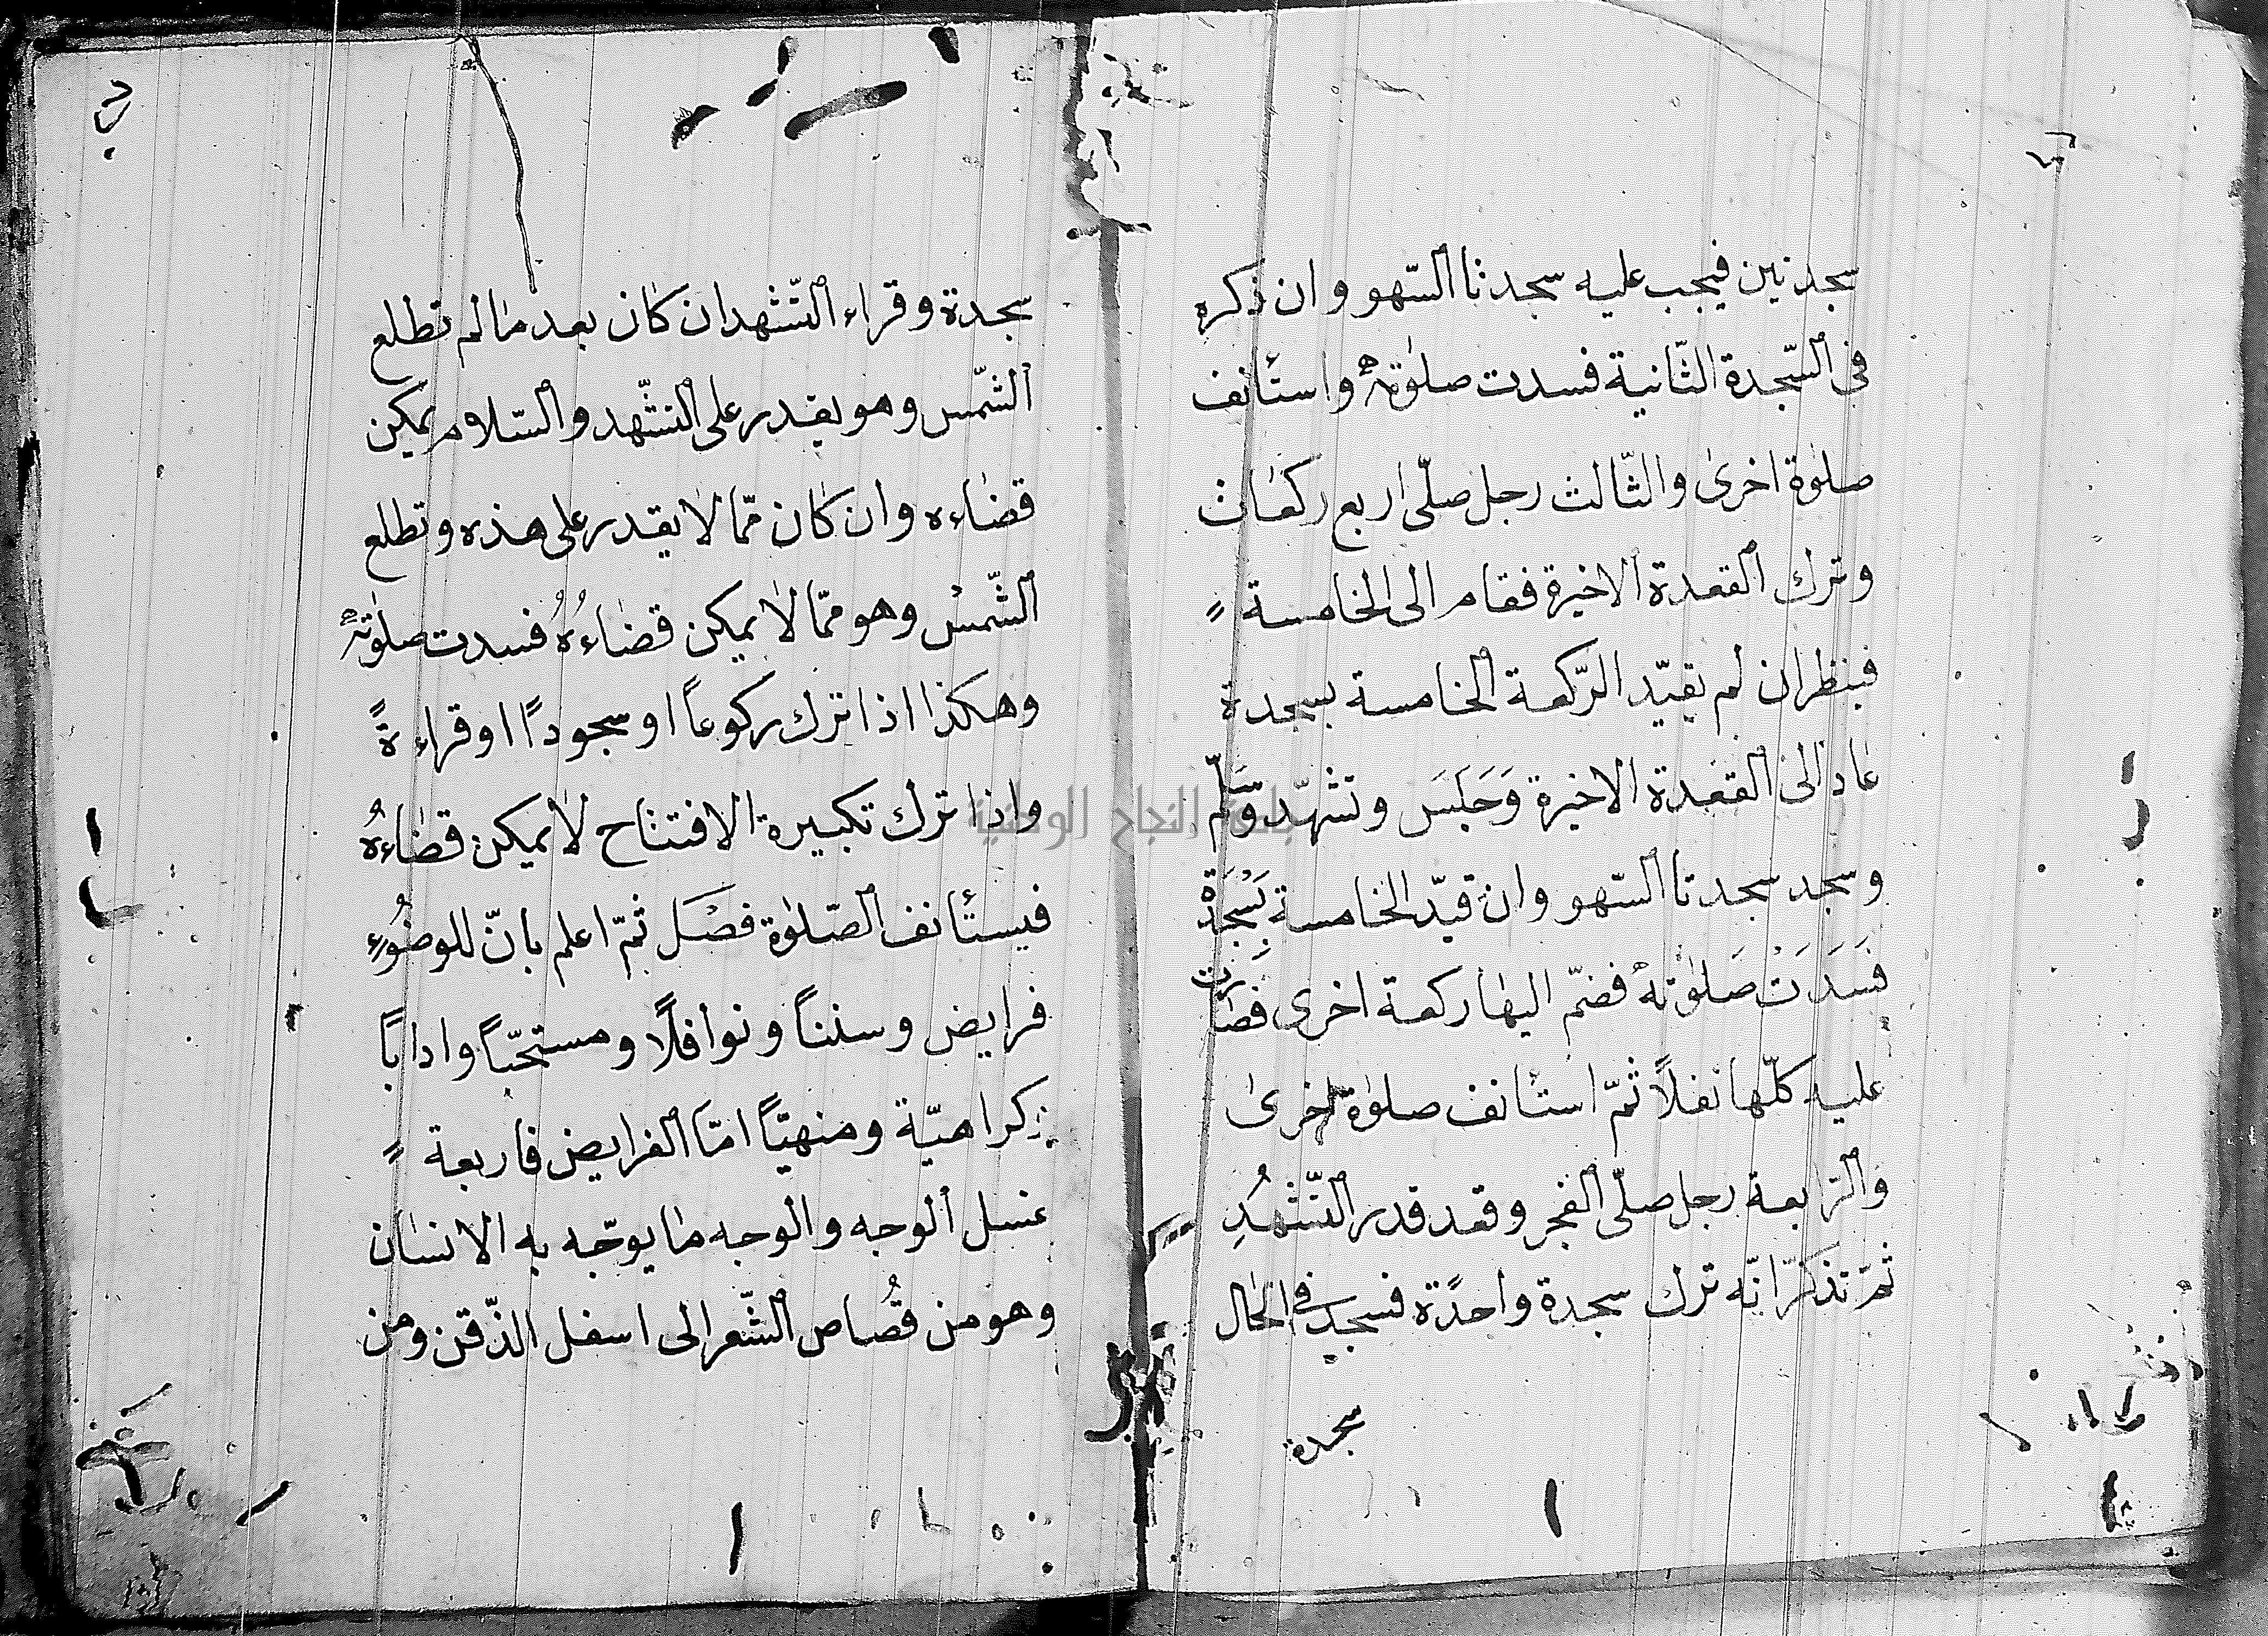 سجدتين فيجب عليه سجدتا السّهو وان ذكره
فى السّجدة الثّانية فسدت صلوٰتهُ واستأنف
صلوٰة اخرىٰ والثّالث رجل صلّى اربع ركعات
وترك القعدة الاخيرة فقام الى الخامسة
فينظر ان لم يقيّد الرّكعة الخامسة بسجدة
عاد الى القعدة الاخيرة وَجَلَسَ وتشهّد وَسَلّم
وسجد سجدتا السّهو وان قيّد الخامسة بِسَجْدَة
فَسَدَتْ صَلوٰتهُ فضمّ اليها ركعة اخرى فصَارت
عليه كلّها نفلاً ثمّ استأنف صلوٰة اخرىٰ
والرّابعة رجل صلّى الفجر وقعد قدر التّشهُدِ
ثمّ تذكرّ انّه ترك سجدة واحدًة فسجد فى الحال
سجدة
سجدة وقراء التّشهد ان كان بعد ما لم تطلع
الشّمس وهو يقدر على التشّهد والسّلام يمكن
قضاءه وان كان ممّا لا يقدر على هذه وتطلع
الشّمسْ وهو ممّا لا يمكن قضاءُهُ فسدت صلوٰتهُ
وهكذا اذا ترك ركوعاً او سجودًا او قراءةً
واذا ترك تكبيرة الافتتاح لا يمكن قضاءهُ
فيستأنف الصّلوٰة فصْل ثمّ اعلم بانّ للوضُوءِ
فرايض وسنناً ونوافلًا ومستحبّاً واداباً
كراهيّة ومنهيّاً امّا الفرايض فاربعة
غسل الوجه والوجه ما يوجّه به الانسان
وهو من قُصاص الشّعر الى اسفل الذّقن ومن
النجاح الوطنية